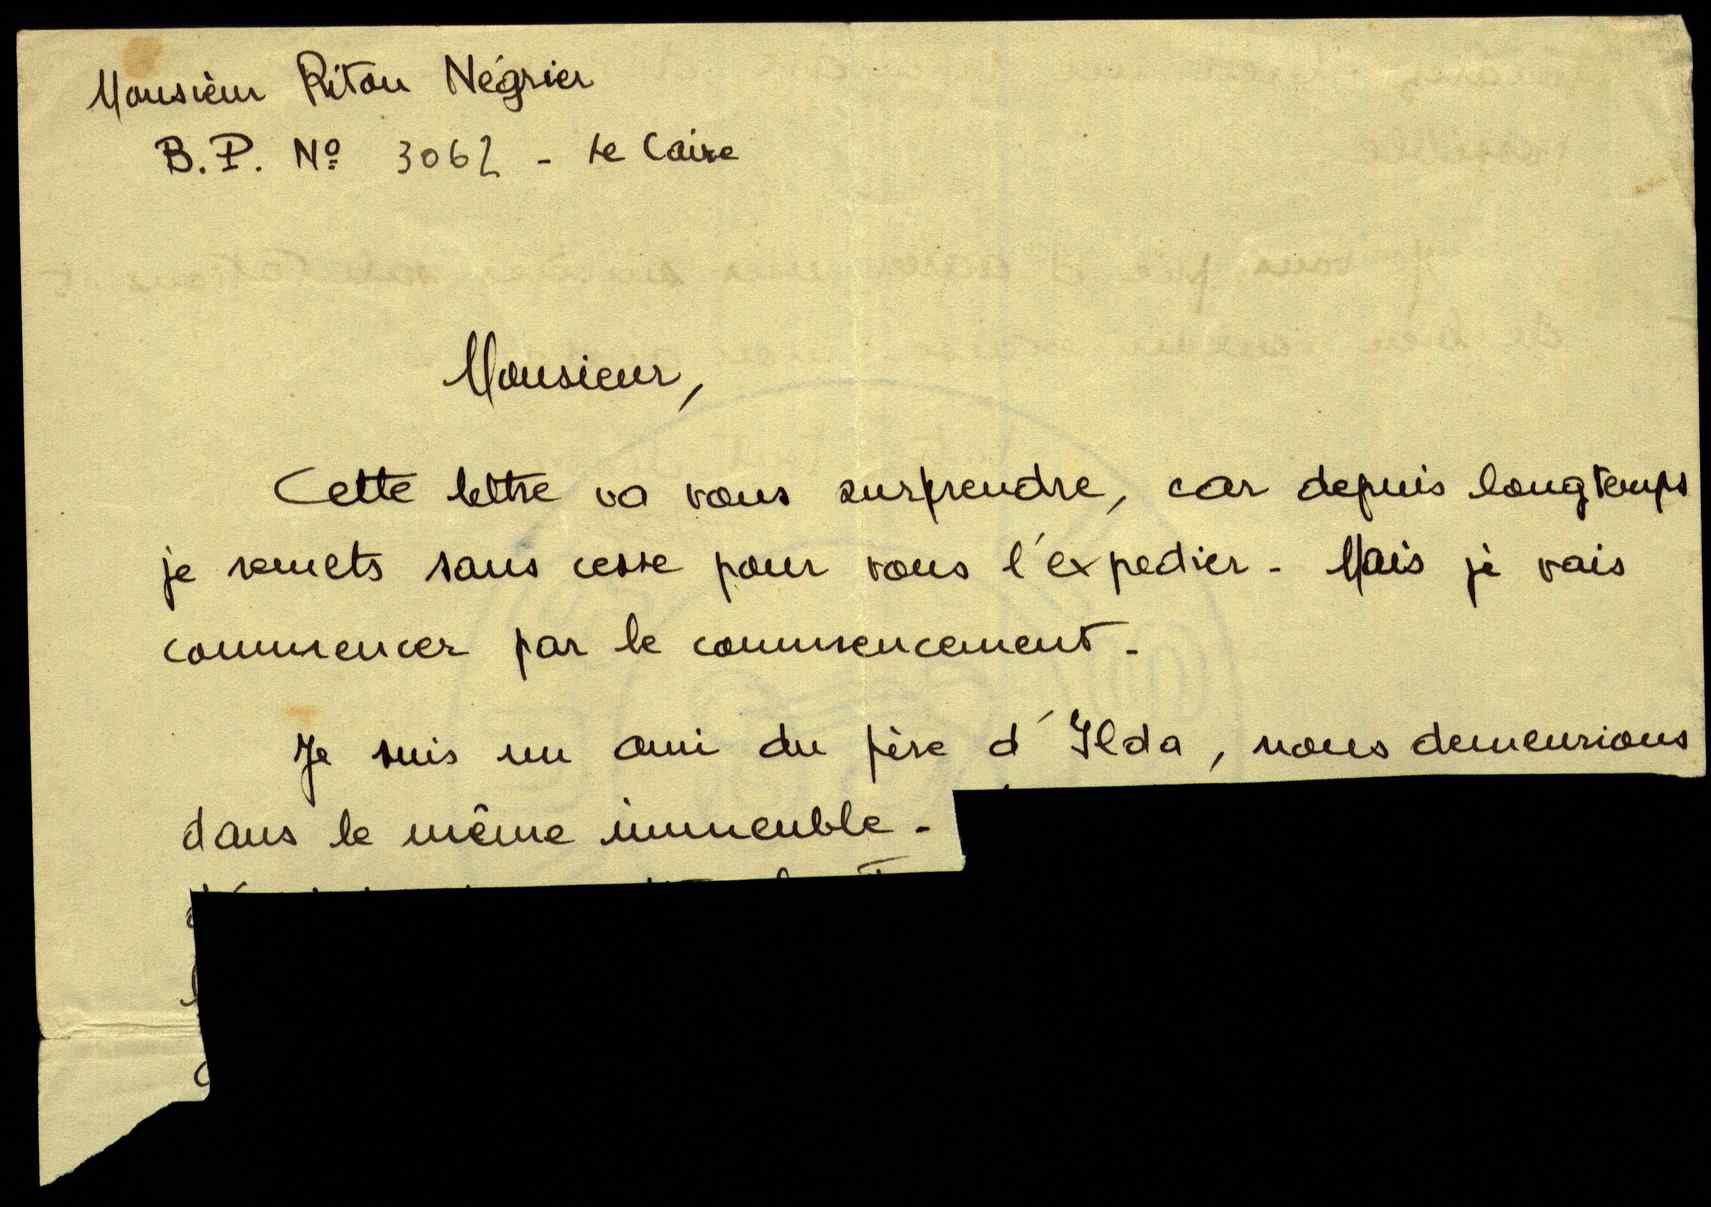 Monsieur Ritou Négrier
B.P. Nº 3062 - le Caire
Monsieur,
Cette lettre va vous surprendre, car depuis longtemps
je remets sans cesse pour vous l'expedier - Mais je vais
commencer par le commencement -
Je suis un ami du père d'Ilda, nous demeurions
dans le même immeuble -